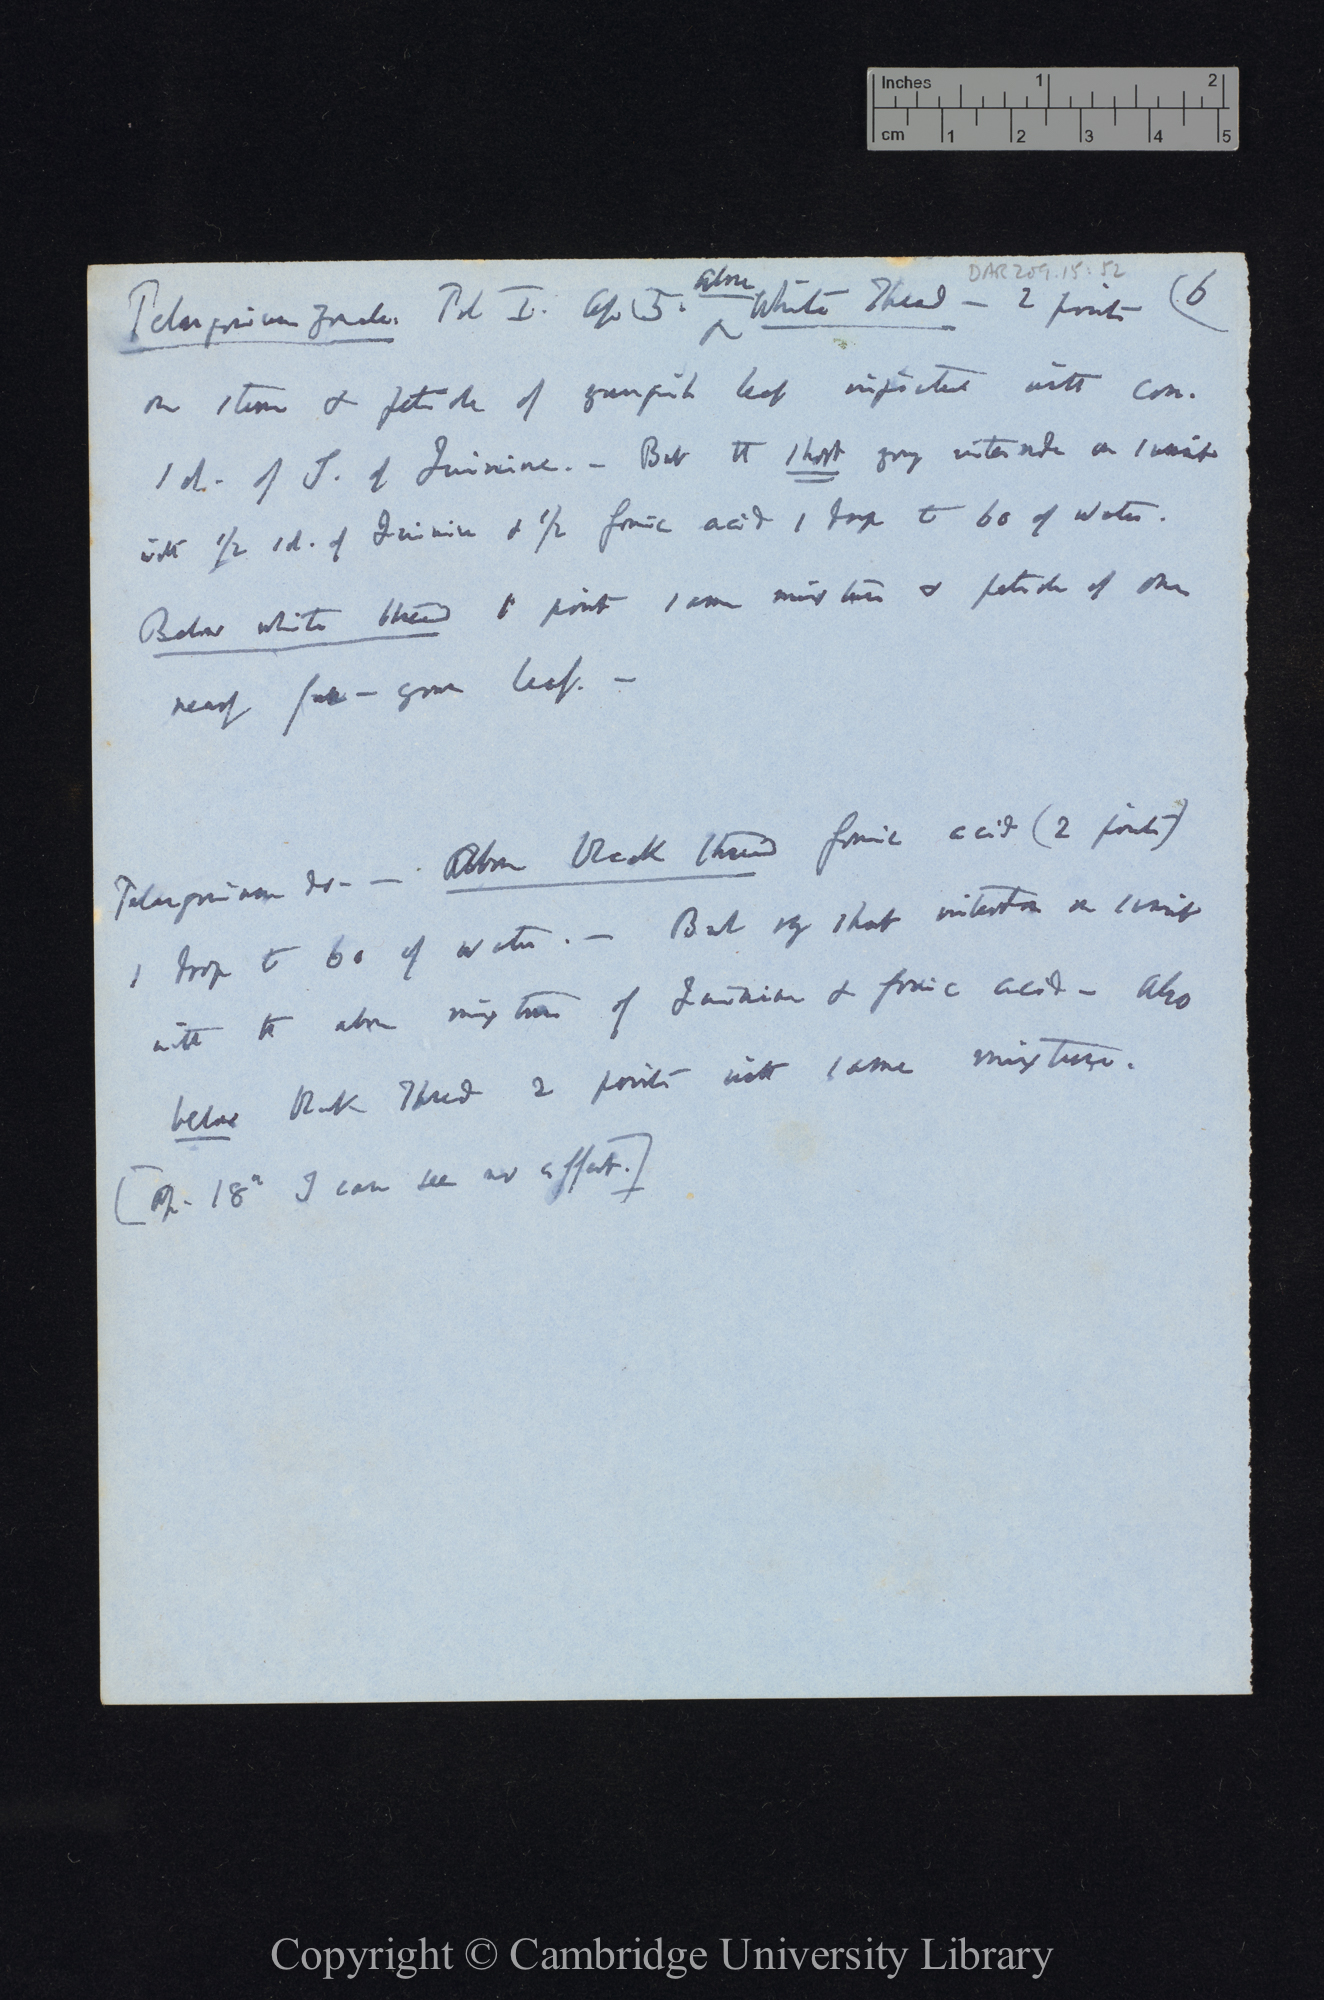 Inches 1 2
cm 1 2 3 4 5
DAR 209.15: 52
Pelargonium zonale. Pot I. Ap. 5. above White Thread — 2 points (6
on stem & petiole of youngish leaf injected with con.
sol. of S. of Quinine. — But the short young internode on summit
with 1/2 sol. of Quinine & 1/2 formic acid 1 drop to 60 of water.
Below white thread point same mixture & petiole of one
nearly full-grown leaf. —
Pelargonium do — Above black thread formic acid (2 points)
1 drop to 60 of water. — But short internode on summit
with the above mixture of Quinine & formic acid — Also
below Black Thread 2 points with same mixture.
[Ap. 18th I can see no effect.]
Copyright © Cambridge University Library